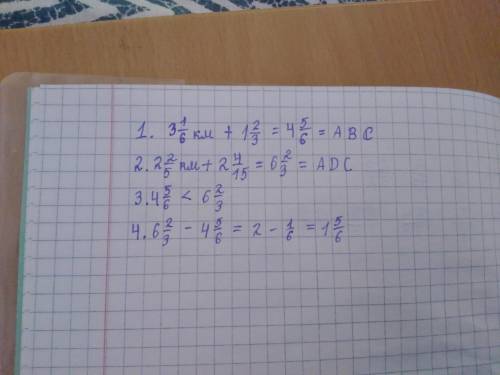 1. 3 1/6 км + 1 2/3 = 4 5/6 = ABC
2. 2 2/5 км + 2 4/15 = 6 2/3 = ADC
3. 4 5/6 < 6 2/3
4. 6 2/3 - 4 5/6 = 2 - 1/6 = 1 5/6